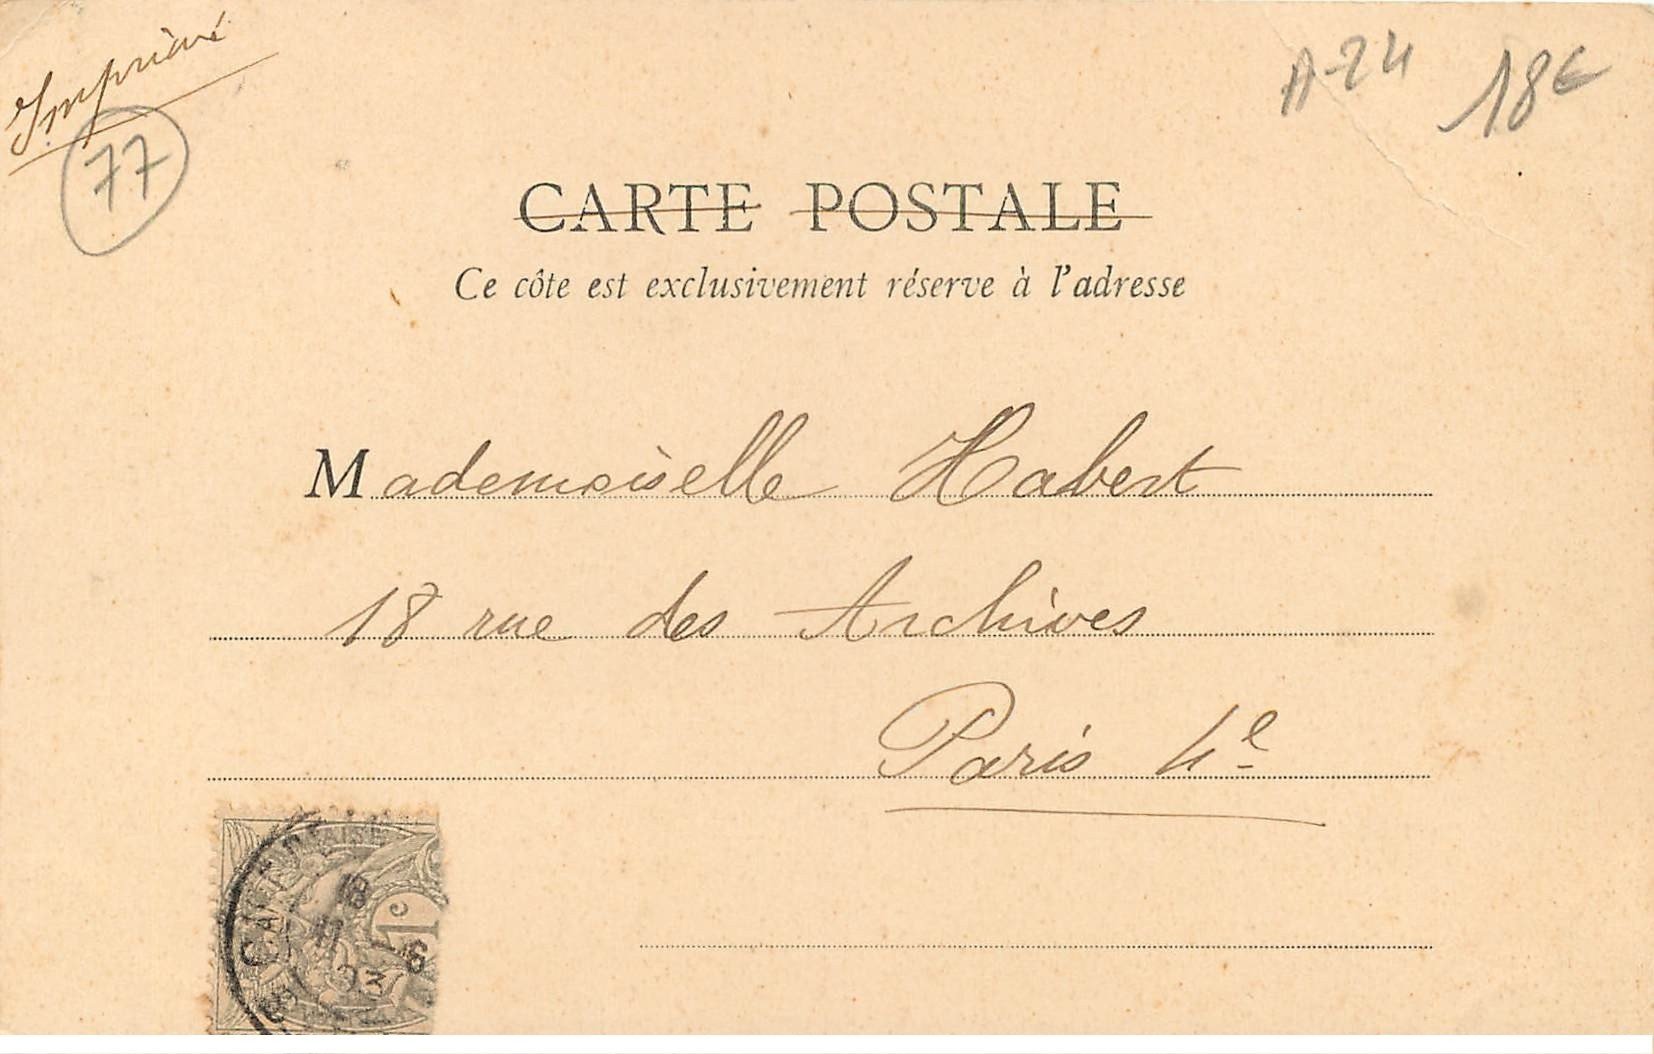 Imprimé
77
A-24
18€
CARTE POSTALE
Ce côte est exclusivement réserve à l'adresse
Mademoiselle Habert
18 rue des Archives
Paris 4e
1c
03